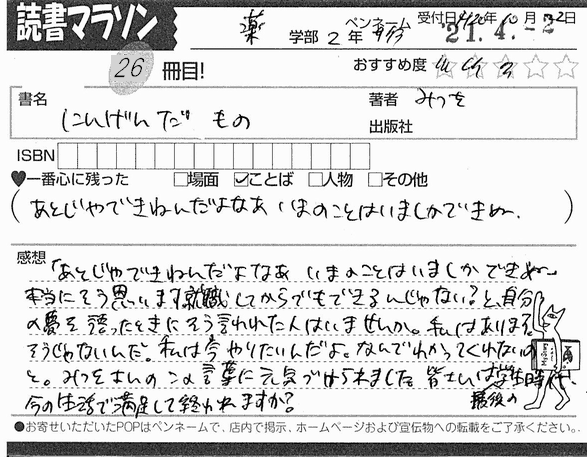 読書マラソン
薬 学部 2 年 ペンネーム 受付日 年 10 月 22日
21.4.-2
26 冊目!
おすすめ度 ☆☆☆☆☆
書名 にんげんだもの
著者 みつを
出版社
ISBN
♥一番心に残った □場面 ☑ことば □人物 □その他
(あとじゃできねんだよなあ いまのことはいましかできぬ〜)
感想
「あとじゃできねんだよなあ いまのことはいましかできぬ〜
本当にそう思います。就職してからでもできるんじゃない?と、自分
の夢を語ったときにそう言われた人はいませんか。私はあります。
そうじゃないんだ。私は今やりたいんだよ。なんでわかってくれないの
と。みつをさんのこの言葉に元気づけられました。皆さんは学生時代
最後の
今の生活で満足して終われますか?
●お寄せいただいたPOPはペンネームで、店内で掲示、ホームページおよび宣伝物への転載をご了承ください。